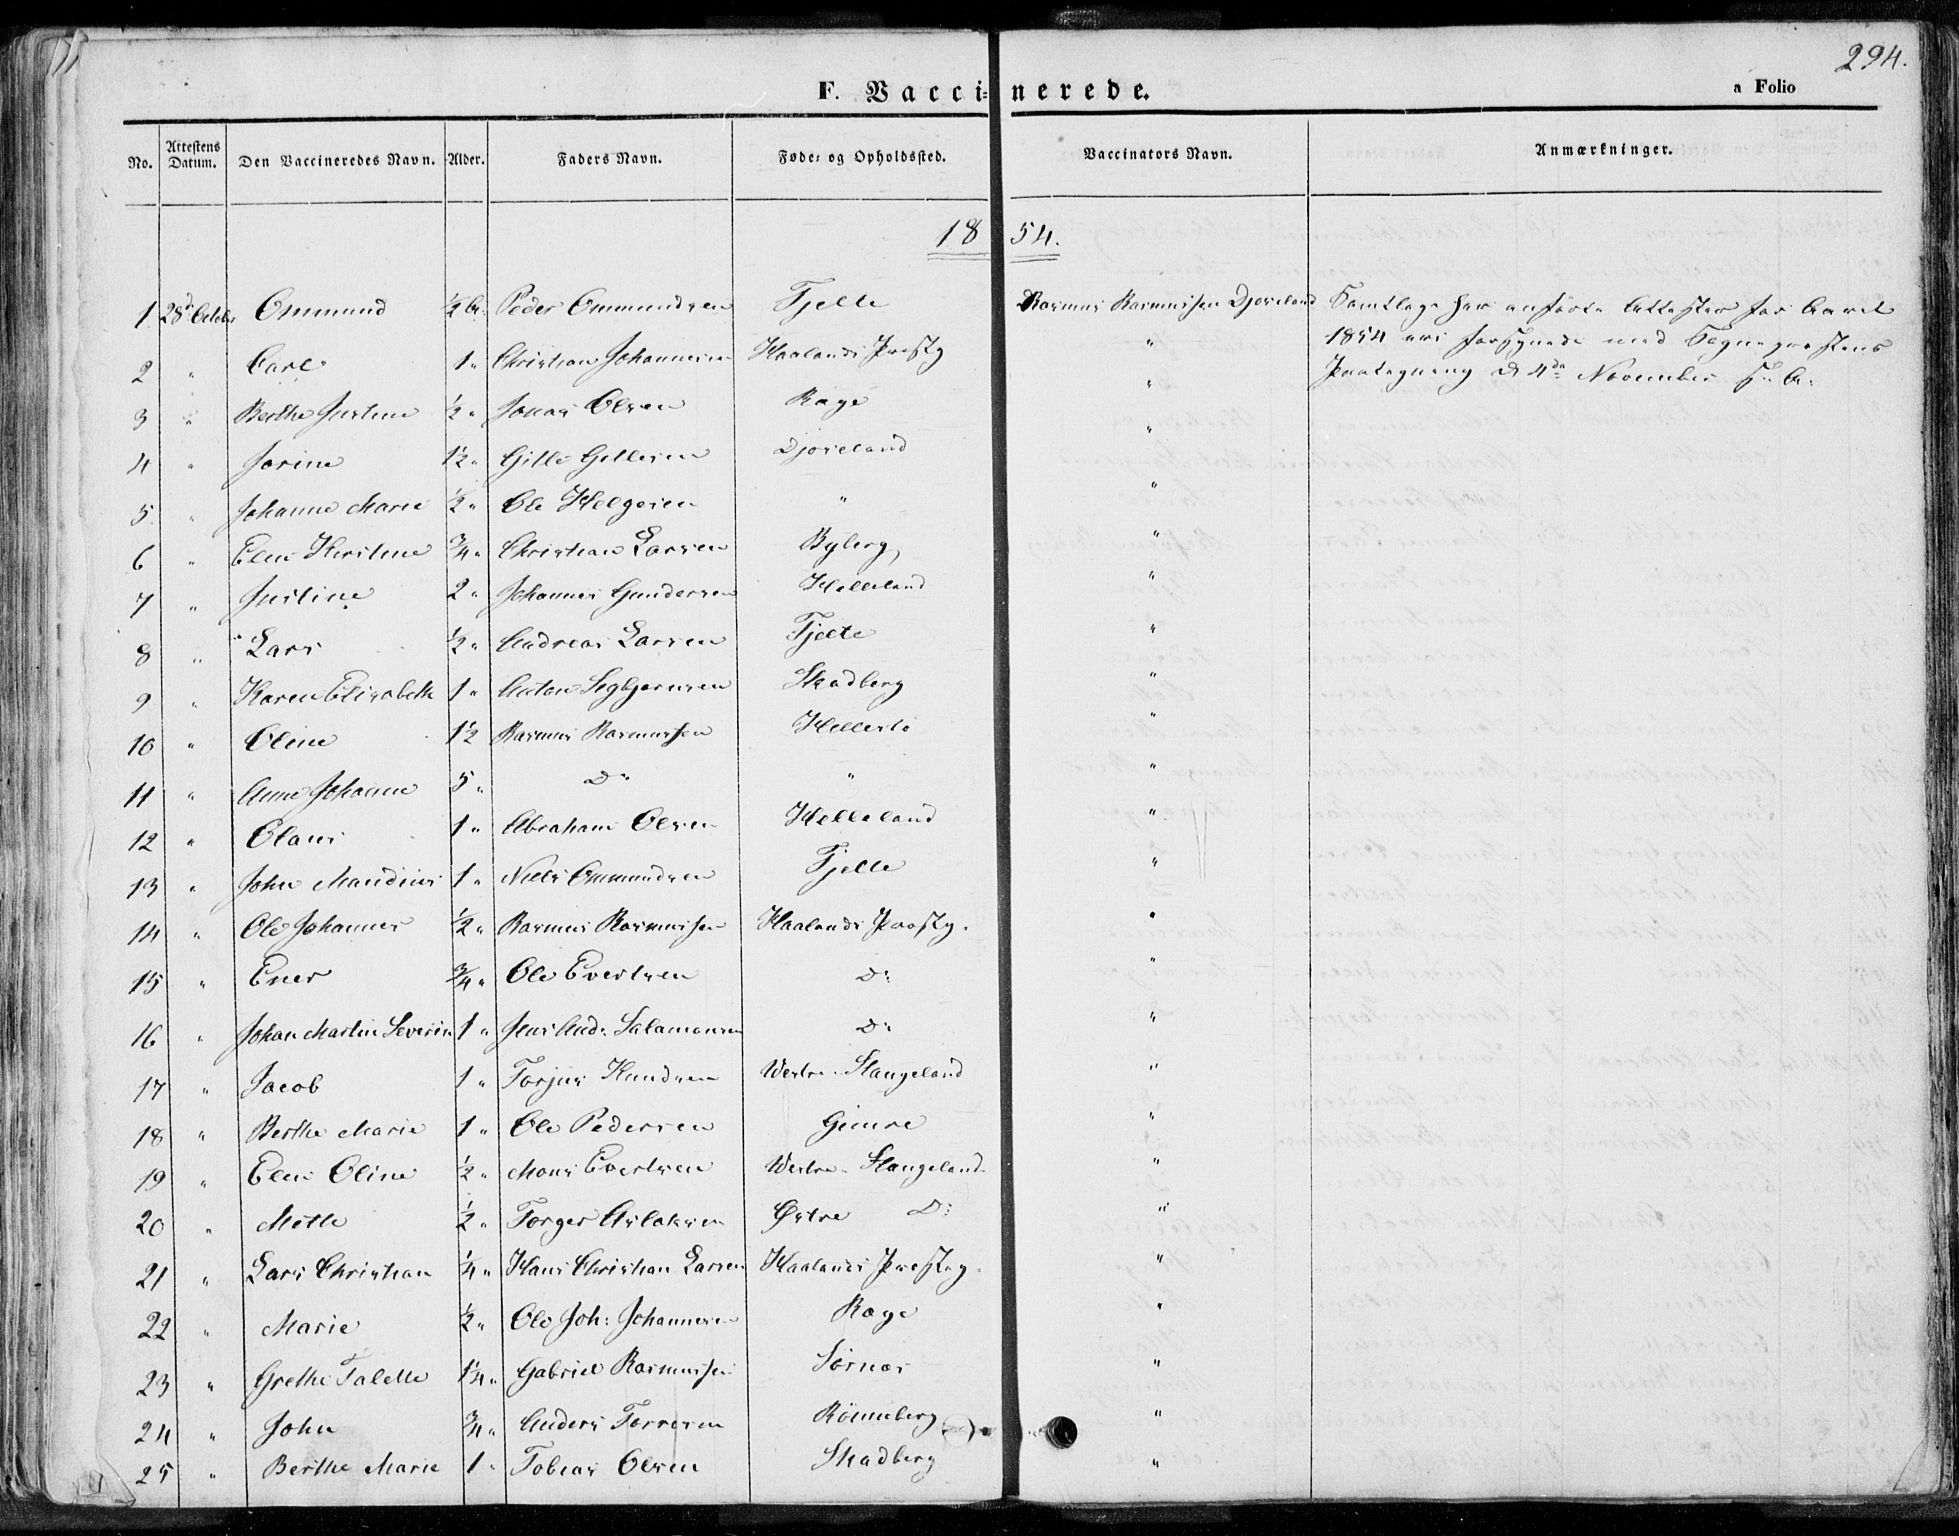 294.
F. Vaccinerede.
a Folio
No. Attestens Datum. Den Vaccineredes Navn. Alder. Faders Navn. Føde- og Opholdssted. Vaccinators Navn. Anmærkninger.
1854.
1 28d Octobr Ommund ½ Peder Ommundsen Tjelte Rasmus Rasmussen Djoreland Samtlige her anførte Attester for Aaret
2 " Carl 1 " Christian Johannesen Haalands Præstg " 1854 ere forsynede med Sognepræstens
3 " Berthe Justine ½ " Jonas Olsen Rage " Paategning d 4de November s. A.
4 " Jorine 1½ " Gitle Gitlesen Djoreland "
5 " Johanne Marie ½ " Ole Helgesen " "
6 " Elen Kirstine ¾ " Christian Larsen Byberg "
7 " Justine 2 " Johannes Gundersen Helleland "
8 " Lars ½ " Andreas Larsen Tjelte "
9 " Karen Elisabeth 1 " Anton Segbjørnsen Skadberg "
10 " Oline 1½ Rasmus Rasmussen Hellestö "
11 " Anne Johanne 5 " D° " "
12 " Olaus 1 " Abraham Olsen Helleland "
13 " John Mandius 1 " Niels Ommundsen Tjelte "
14 " Ole Johannes ½ " Rasmus Rasmussen Haalands Præstg. "
15 " Ener ¾ " Ole Evertsen D: "
16 " Johan Martin Severin 1 " Jens And: Salamonsen D: "
17 " Jacob 1 " Torjus Knudsen Vestre Stangeland "
18 " Berthe Marie 1 " Ole Pedersen Gimre "
19 " Elen Oline ½ " Mons Evertsen Vestre Stangeland "
20 " Mette ½ " Torger Aslaksen Østre D: "
21 " Lars Christian ¼ " Hans Christian Larsen Haalands Præstg. "
22 " Marie ½ " Ole Joh: Johannesen Rage "
23 " Grethe Talette 1¼ " Gabriel Rasmussen Sörnæs "
24 " John ¾ " Anders Torresen Rönneberg "
25 " Berthe Marie 1 " Tobias Olsen Skadberg "